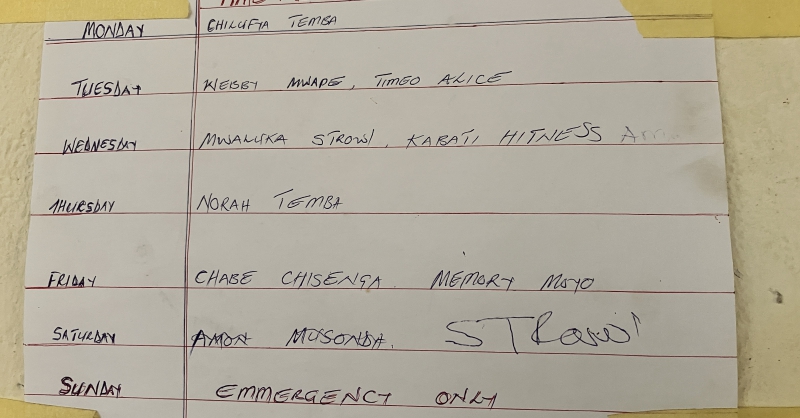 MONDAY CHILUFYA TEMBA
TUESDAY WEBBY MWAPE, TIMEO ALICE
WEDNESDAY MWALUKA STROWI, KABATI HITNESS
THURSDAY NORAH TEMBA
FRIDAY CHABE CHISENGA MEMORY MOYO
SATURDAY AMON MUSONDA.
SUNDAY EMMERGENCY ONLY